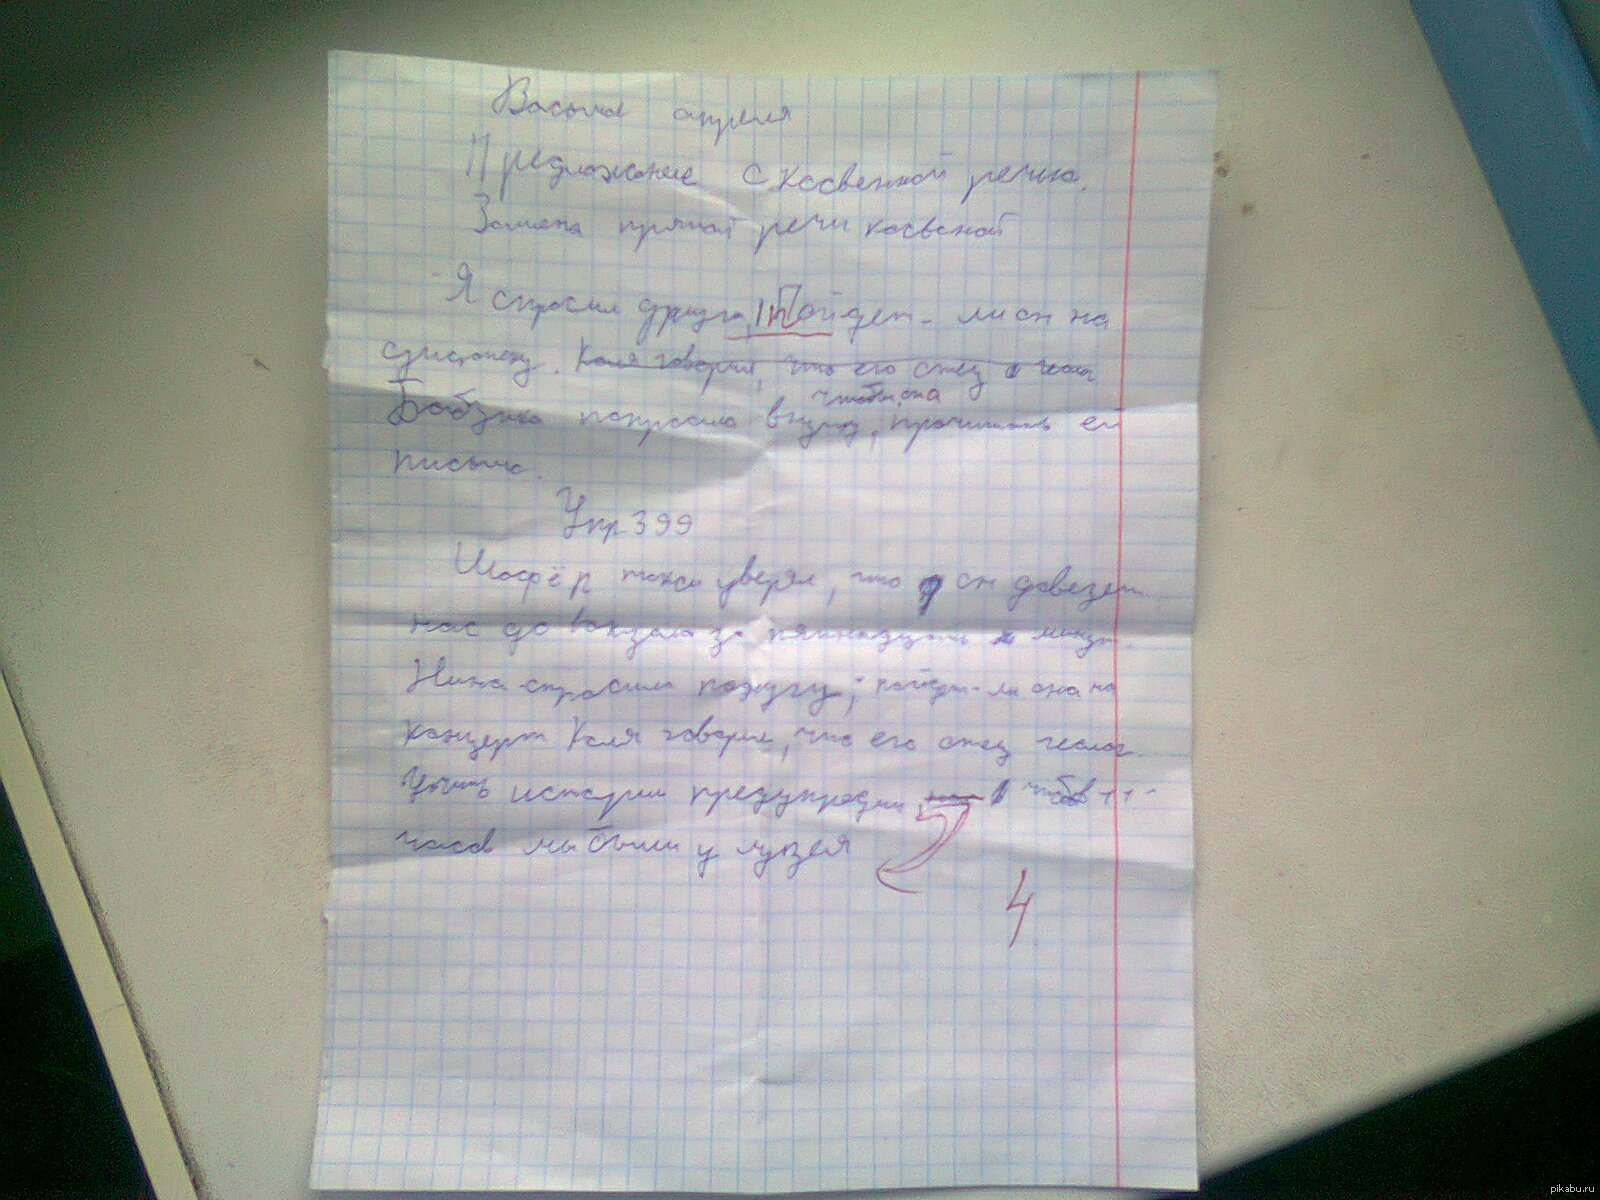 Восьмое апреля
Предложение с косвенной речью.
Замена прямой речи косвеной
Я спросил друга, Пойдет-ли он на
Коля говорил, что его отец геолог
чтобы она
Бабушка попросила внука, прочитать ей
письмо.
Упр 399
Шофёр такси уверял, что он довезет
нас до вокзала за пятнадцать минут.
Нина спросила подругу, пойдет-ли она на
концерт Коля говорил, что его отец геолог
истории предупредил чтоб в 11-
часов мы были у музея
4
pikabu.ru